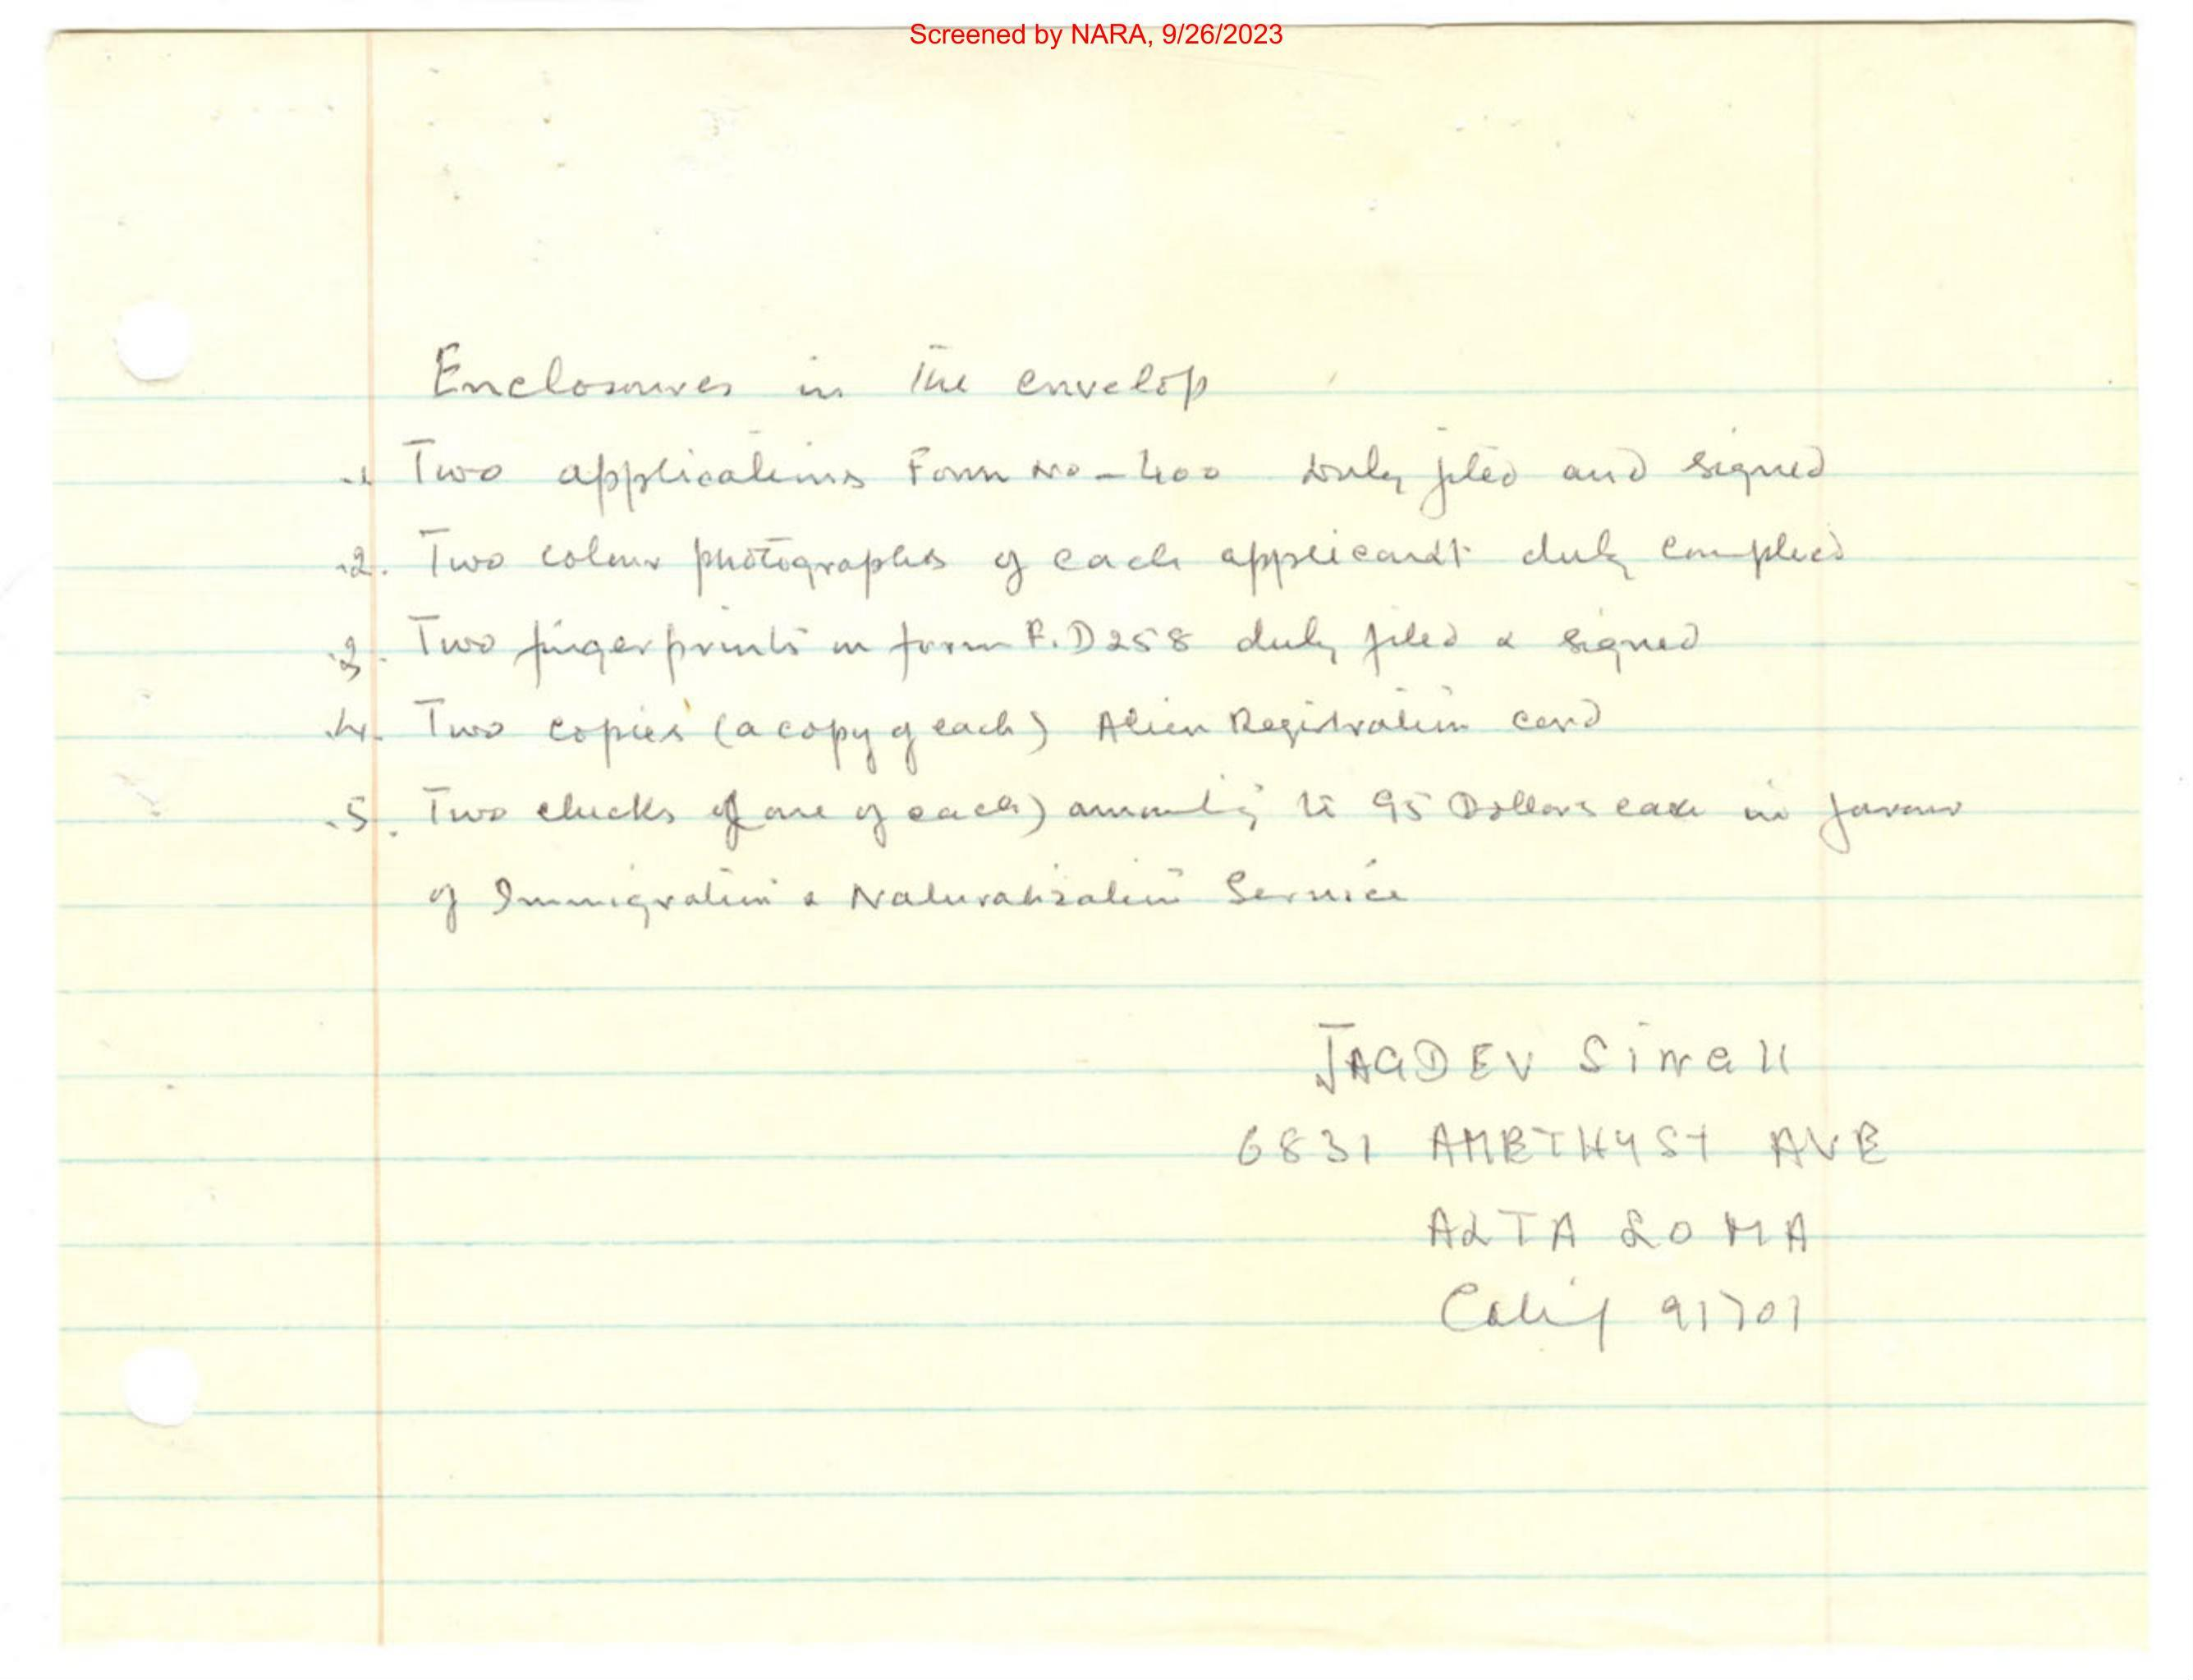 Screened by NARA, 9/26/2023
Enclosures in the envelop
1 Two applications Form No-400 duly filed and signed
2. Two colour photographs of each applicant duly complied
3. Two fingerprints in form F.D 258 duly filed & signed
4. Two copies (a copy of each) Alien Registration card
5. Two checks of one of each) amounting to 95 Dollars each in favour
of Immigration & Naturalization Service
JAGDEV SINGH
6831 AMETHYST AVE
ALTA LOMA
Calif 91701